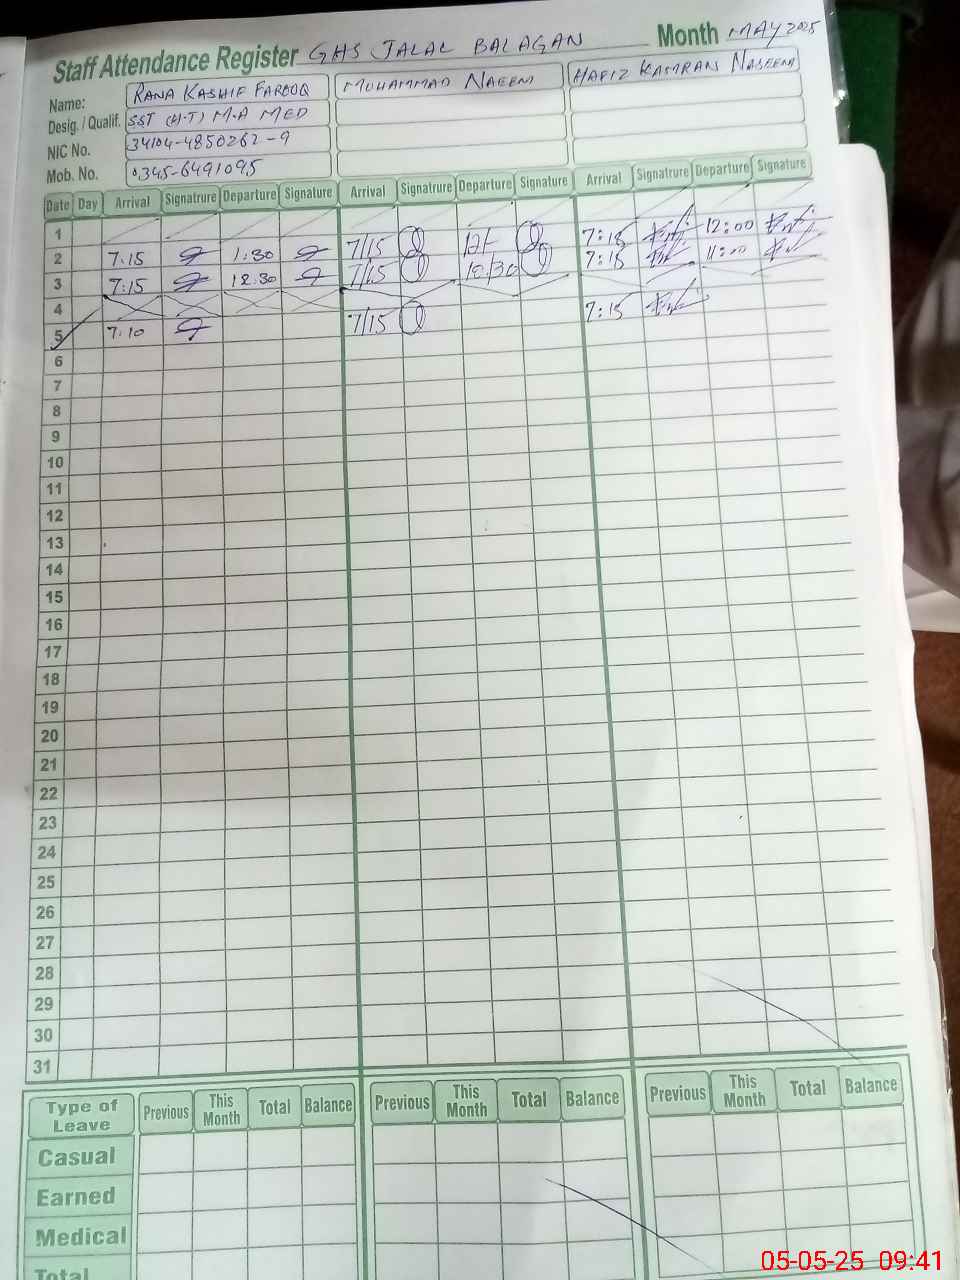 Staff Attendance Register GHS JALAL BALAGAN Month MAY 2025
Name: RANA KASHIF FAROOQ MUHAMMAD NAEEM HAFIZ KAMRAN NASEEM
Desig. / Qualif. SST (H.T) M.A MED
NIC No. 34104-4850262-9
Mob. No. 0345-6491095
Date Day Arrival Signatrure Departure Signature Arrival Signatrure Departure Signature Arrival Signatrure Departure Signature
1
2 7:15 1:30 7/15 12/- 7:15 12:00
3 7:15 12:30 7/15 7:15 11:00
4
5 7:10 7/15 7:15
6
7
8
9
10
11
12
13
14
15
16
17
18
19
20
21
22
23
24
25
26
27
28
29
30
31
Type of Leave Previous This Month Total Balance Previous This Month Total Balance Previous This Month Total Balance
Casual
Earned
Medical
Total
05-05-25 09:41